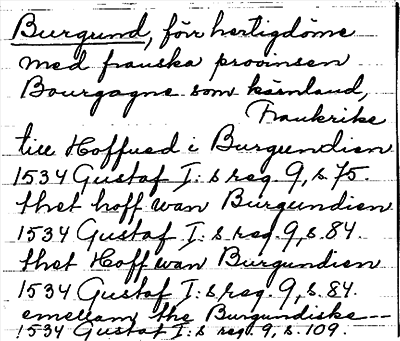 Burgund, förr hertigdöme
med franska provinsen
Bourgogne som kärnland,
Frankrike
till Hoffued i Burgundien
1534 Gustaf I:s reg. 9, s. 75.
thet hoff wan Burgundien
1534 Gustaf I:s reg. 9, s. 84.
thet Hoff wan Burgundien
1534 Gustaf I:s reg. 9, s. 84.
emellam the Burgundiske---
1534 Gustaf I:s reg. 9, s. 109.